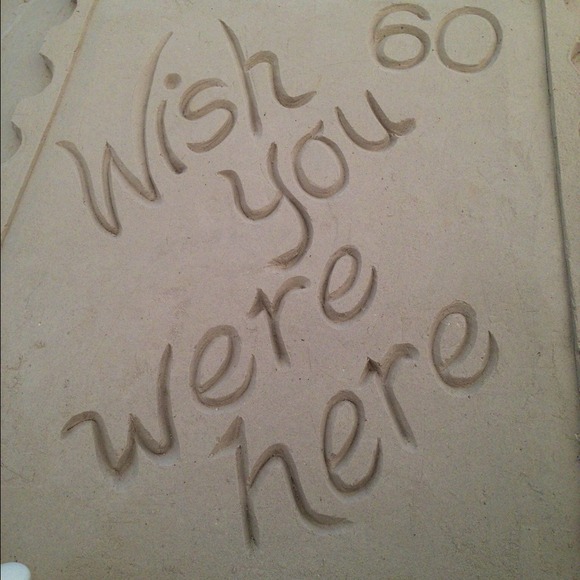 60
Wish
you
were
here